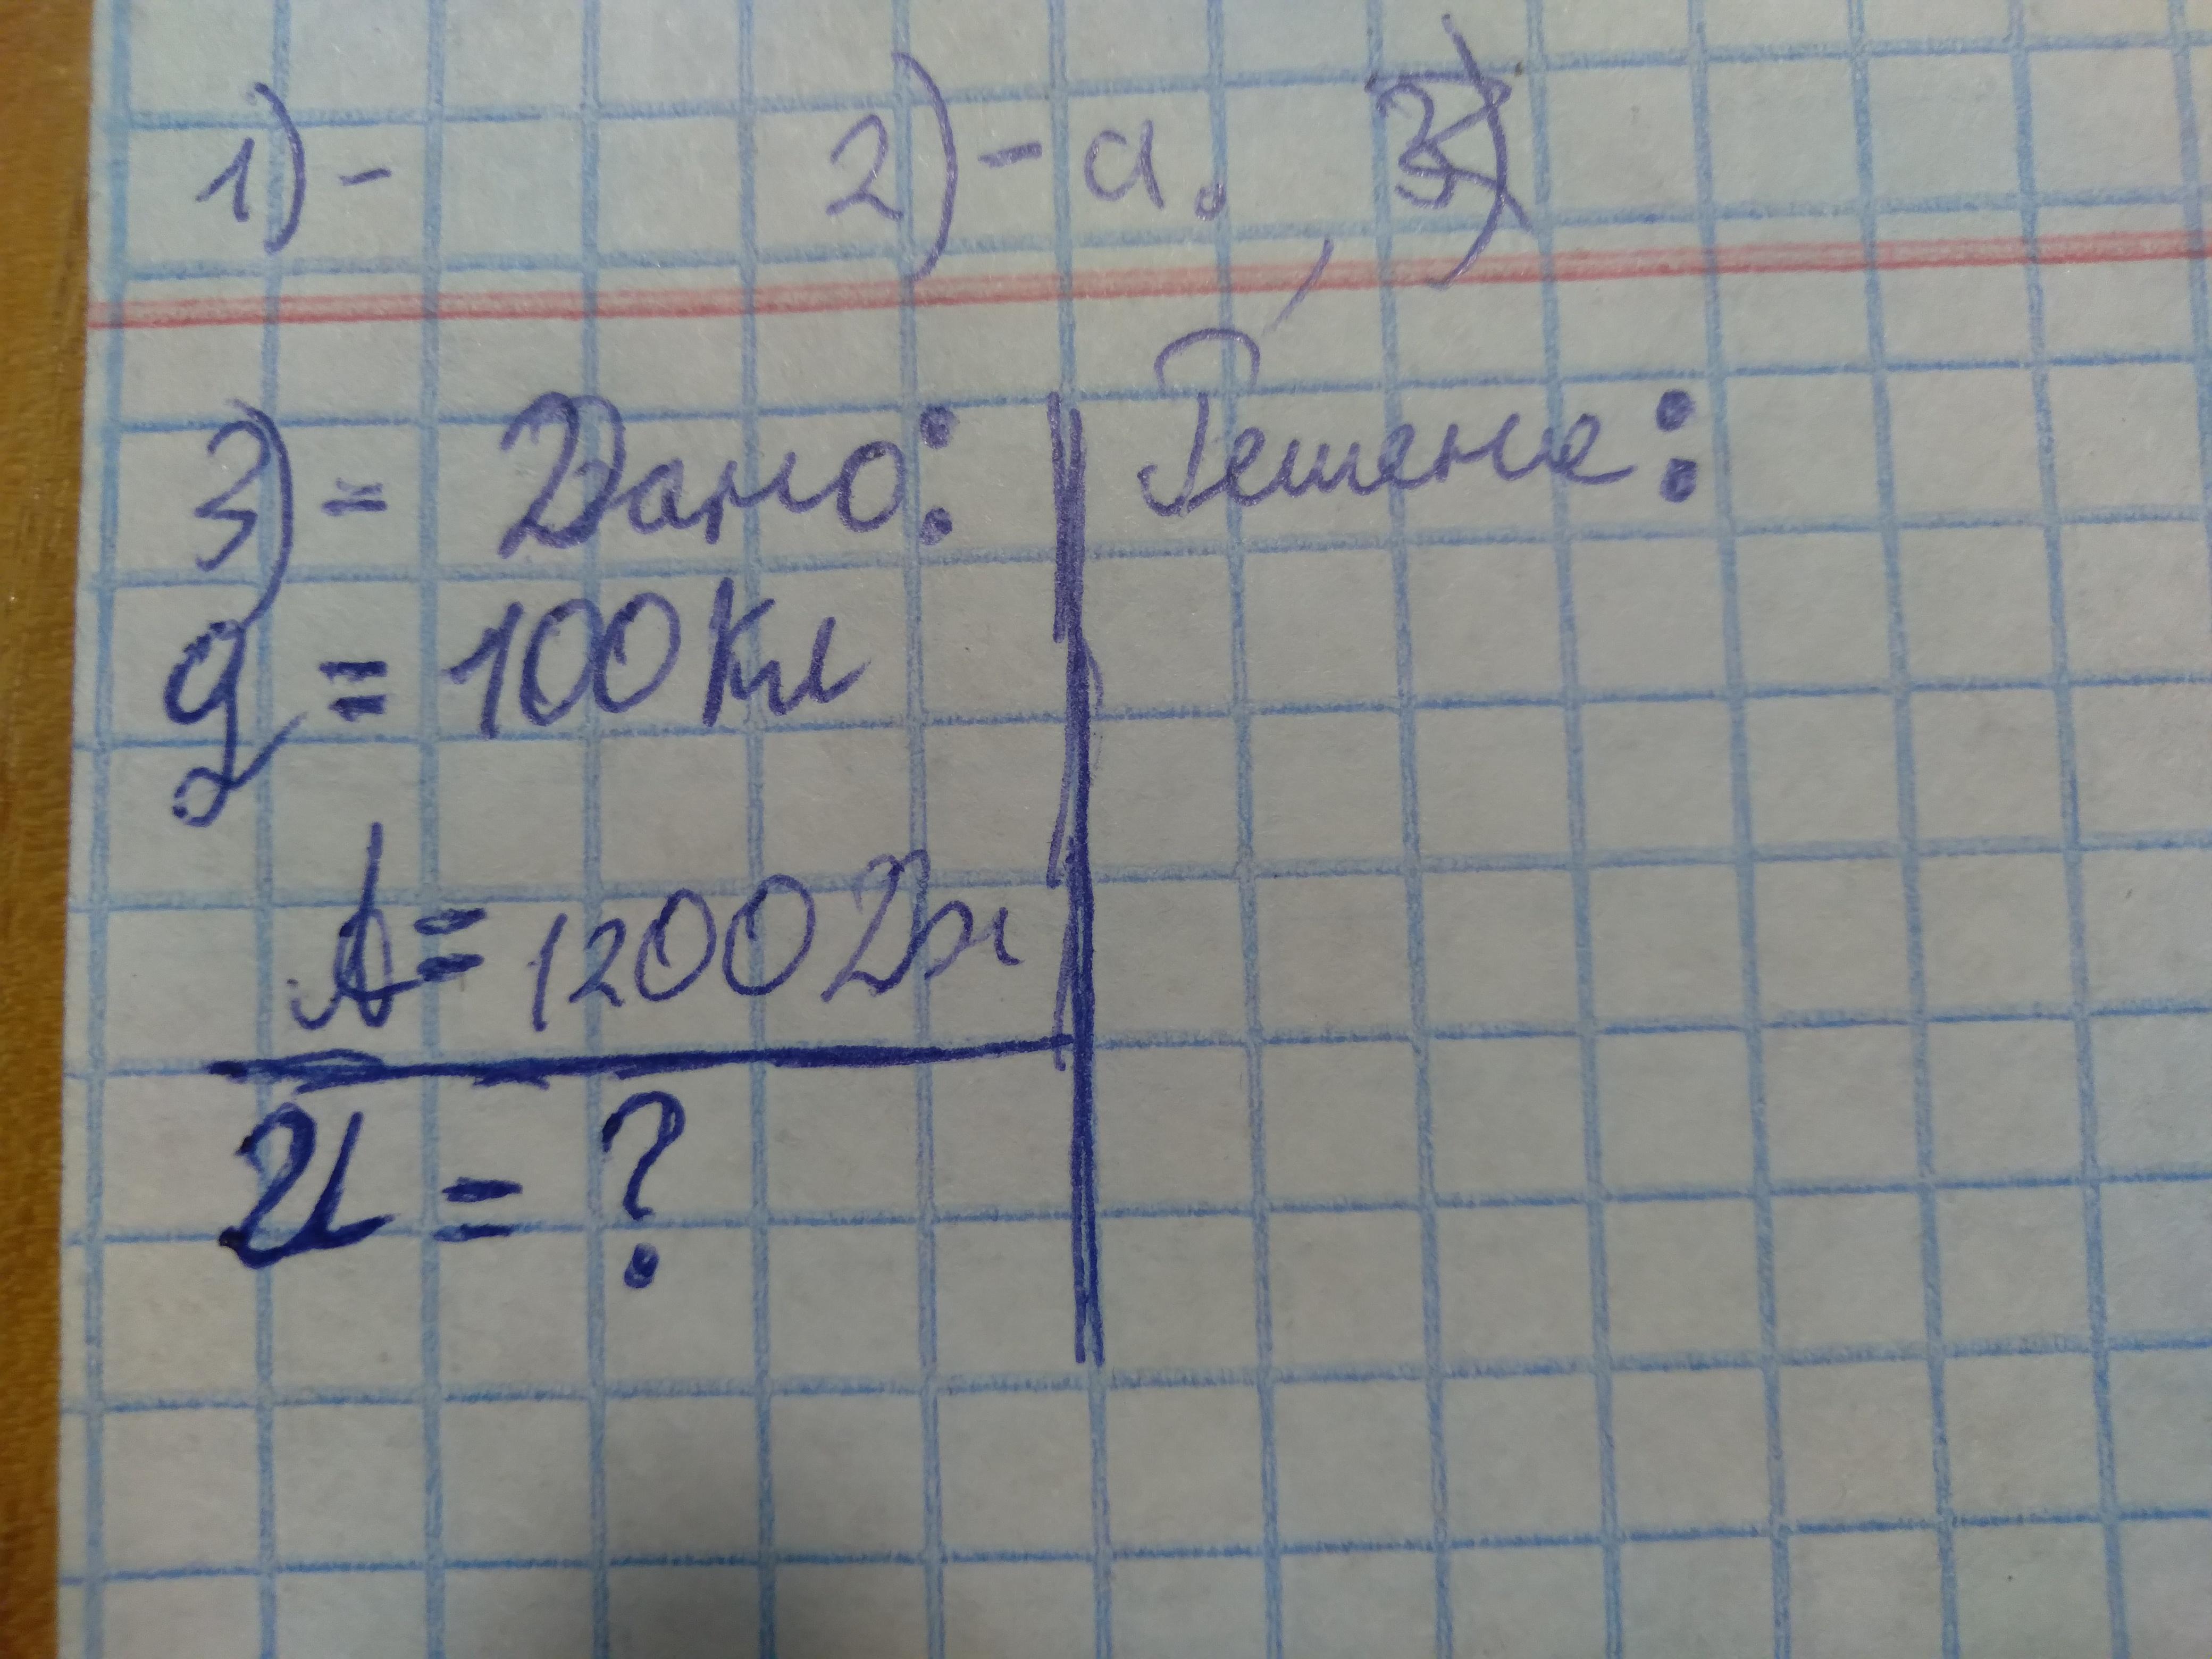 1) - 2) - а.
3) - Дано: Решение:
q = 100 Кл
A = 1200 Дж
U = ?